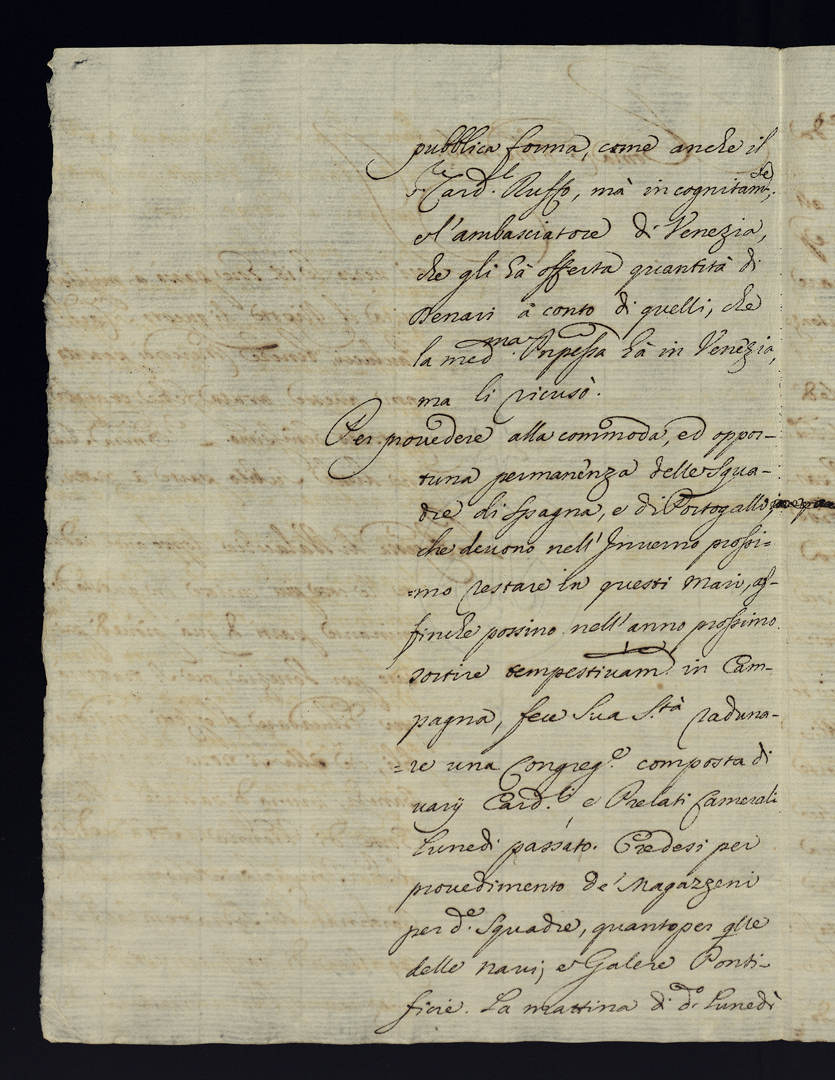 pubblica forma, come anche il
Card.le Ruffo, mà incognitam.te,
e l'ambasciatore di Venezia,
che gli hà offerta quantità di
denari à conto di quelli, che
la med.ma Pnpessa hà in Venezia,
ma li ricusò.
Per provedere alla commoda, ed oppor-
tuna permanenza delle Squa-
dre di Spagna, e di Portogallo
che devono nell'Inverno prossi=
=mo restare in questi mari, af-
finche possino nell'anno prossimo
sortire tempestivam.te in Cam-
pagna, fece Sua S.tà raduna-
=re una Congreg.e composta di
varij Card.li, e Prelati Camerali
Lunedì passato. Credesi per
provedimento de' Magazzeni
per d.e Squadre, quanto per q͂lle
delle navi, e Galere Ponti-
ficie. La mattina di d.o Lunedì